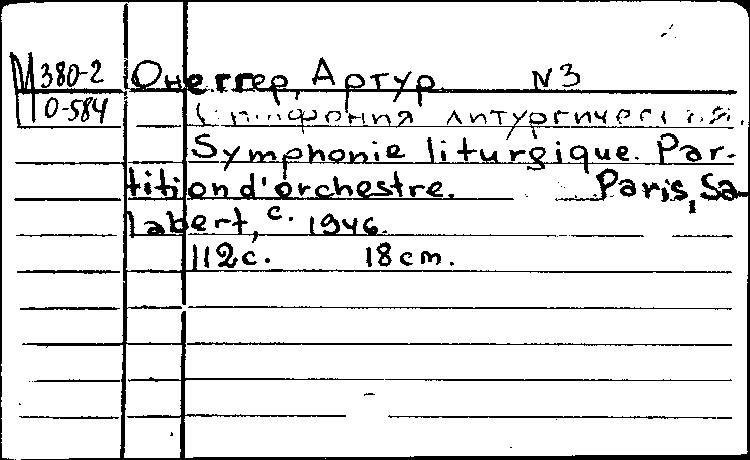 М 380-2 Онеггер, Артур N 3
О-584
Симфония литургическая.
Symphonie liturgique. Par-
tition d'orchestre. Paris, Sa-
labert, c. 1946.
112 с. 18 cm.